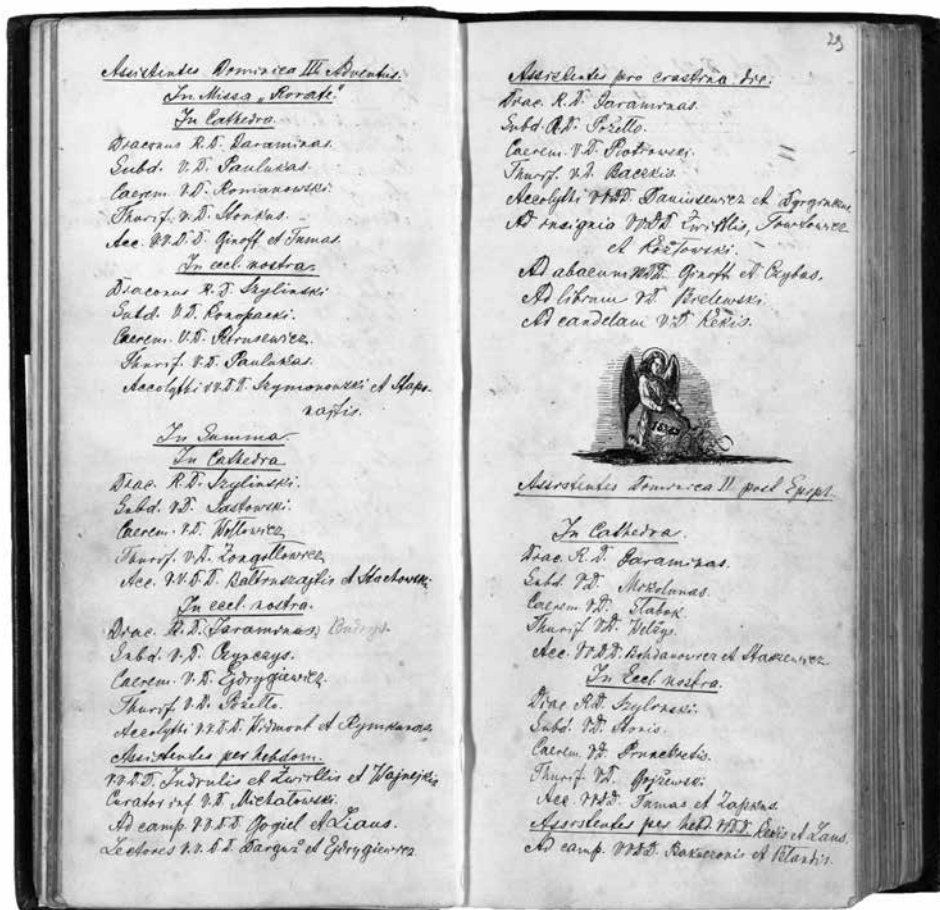 Assistentes Dominica III Adventus.
In Missa „Rorate."
In Cathedra
Diaconus R.D. Daraminas.
Subd. V.D. Paulukas.
Caerem. V.D. Romanowski.
Thurif. V.D. Stonkus.
Acc. V.V.D.D. Ginoff et Tumas.
In eccl. nostra.
Diaconus R.D. Szylinski
Subd. V.D. Konopacki.
Caerem. V.D. Petrusewicz.
Thurif. V.D. Paulukas.
Accolythi VV.DD. Szymonowski et Stapo-
najtis.
In Summa.
In Cathedra
Diac. R.D. Szylinski.
Subd. V.D. Sastowski.
Caerem. V.D.
Thurif. V.D. Zongołłowicz
Acc. V.V.D.D. Baltruszajtis et Stachowski.
In eccl. nostra.
Diac. R.D. (Jaraminas)
Subd. V.D. Czynczys.
Caerem. V.D. Ejdrygiewicz.
Thurif V.D. Pożełło.
Accolythi V.V.D.D. Widmont et
Assistentes per hebdom.
V.V.D.D. Indrulis et Zwirllis et Wajnejkis
Curator inf. V.D. Michałowski.
Ad camp. VV.DD. Gogiel et Liaus.
Lectores V.V. DD. Darguż et Ejdrygiewicz
29
Assistentes pro crastina die:
Diac. R.D. Jaraminas.
Subd. R.D. Pożełło.
Caerem. V.D. Piotrowski.
Thurif. V.D. Baczkis.
Accolythi VV.DD. Daniusewicz et
Ad insignia VV.DD Zwirllis, Towtowicz
et Kozłowski.
Ad abacum VV.DD. Ginoff et Czybas.
Ad librum VD. Brelewski.
Ad candelam V.D. Kekis.
Assistentes Dominica II post Epiph.
In Cathedra.
Diac. R.D. Jaraminas.
Subd. V.D. Mikolunas.
Caerem. V.D. Slabok.
Thurif. V.D. Welżys.
Acc. VV.DD. Bohdanowicz et Staszewicz.
In Eccl. nostra.
Diac. R.D. Szylinski.
Subd. V.D. Stonis.
Caerem. V.D.
Thurif. V.D. Gojżewski.
Acc. VV.DD. Tumas et Zapkus.
Assistentes per hebd. VV.DD. Kekis et Zaus.
Ad camp. VV.DD. et Blandis.